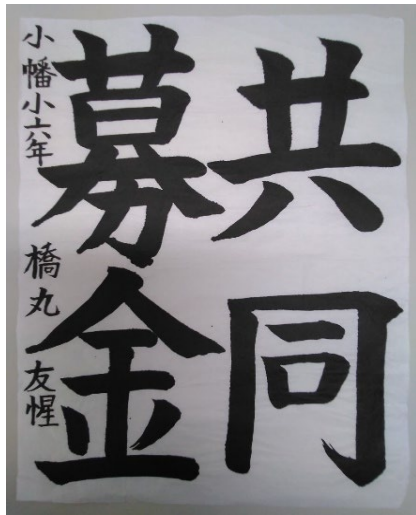 共同
募金
小幡小六年 橋丸 友惺